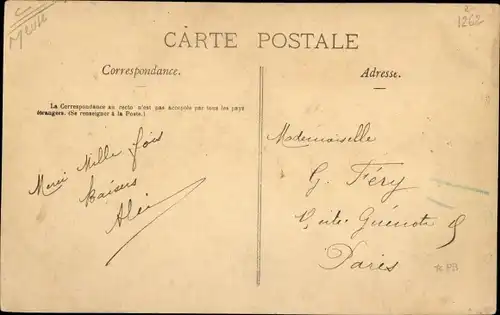 Meuse
1262
CARTE POSTALE
Correspondance.
Adresse.
La Correspondance au recto n'est pas acceptée par tous les pays
étrangers. (Se renseigner à la Poste.)
Merci Mille fois
Baisers
Mademoiselle
G. Féry
cité Guénot
Paris
PB